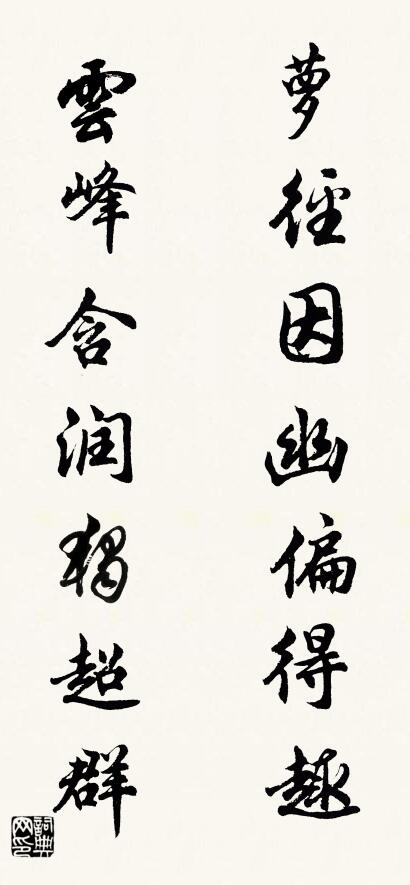 萝徑因幽偏得趣
雲峰含润獨超群
詞典
网印